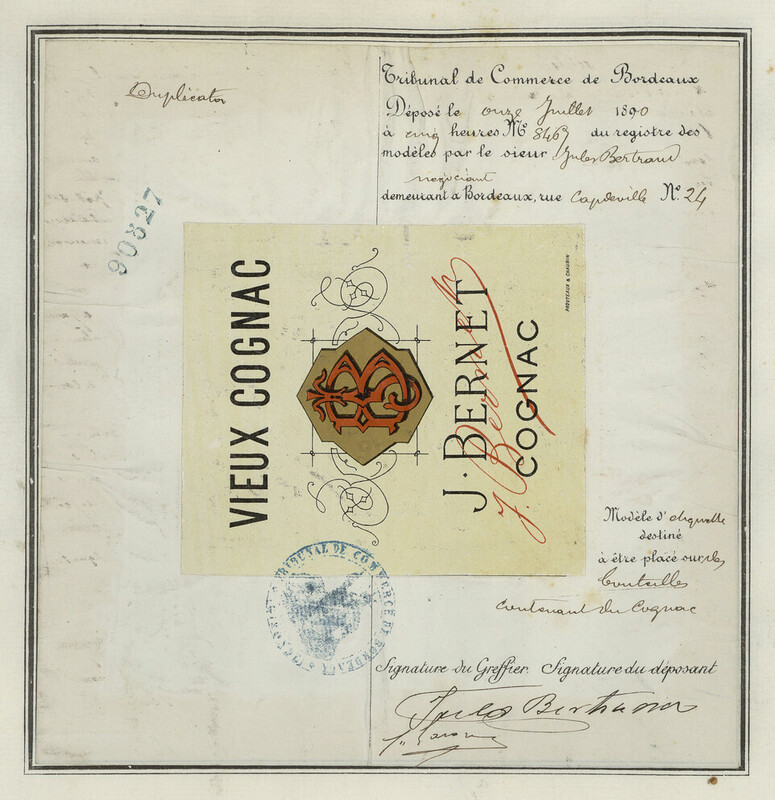 Duplicata
Tribunal de Commerce de Bordeaux
Déposé le onze Juillet 1890
à cinq heures No 8463 du registre des
modèles par le sieur Jules Bertrand
négociant
demeurant à Bordeaux, rue Capdeville No. 24
90827
VIEUX COGNAC
J. BERNET
COGNAC
J. Bernet
Modèle d'étiquette
destiné
à être placé sur des
bouteilles
contenant du Cognac
TRIBUNAL DE COMMERCE DE BORDEAUX
Signature du Greffier. Signature du déposant
Jules Bertrand